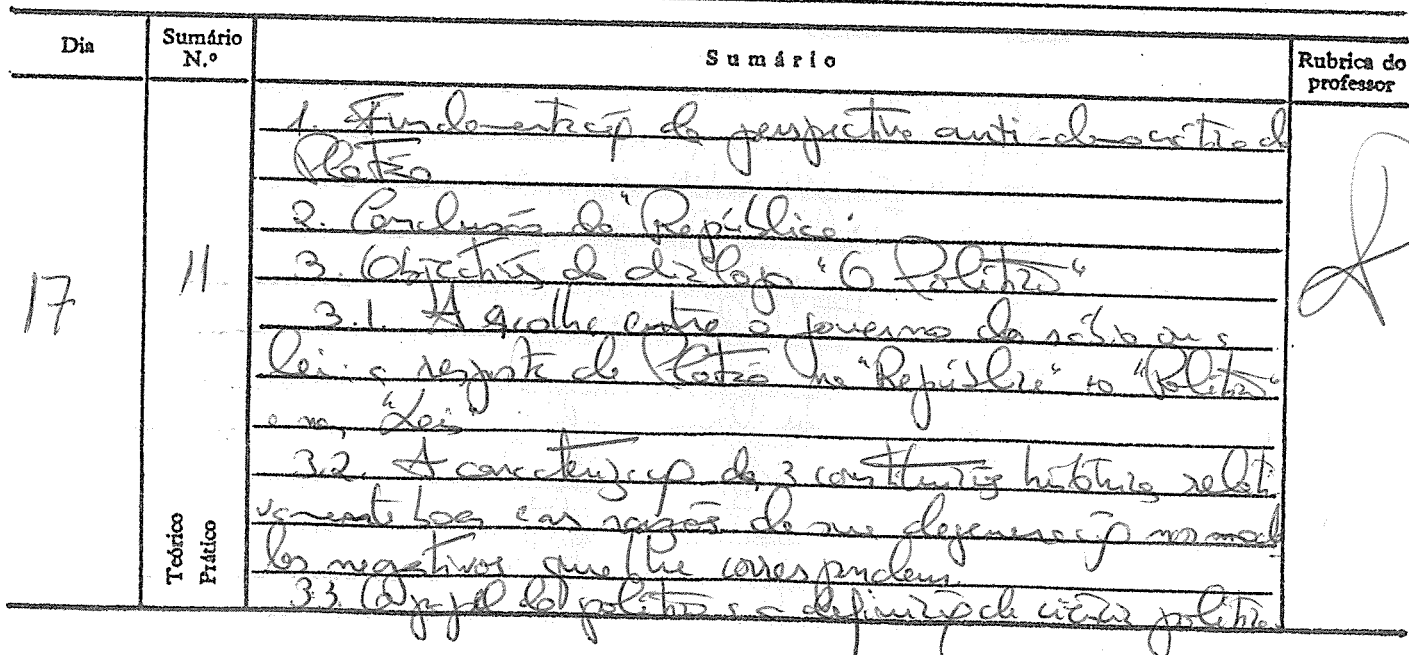 Dia
Sumário N.º
Sumário
Rubrica do professor
17
11
Teórico
Prático
1. Fundamentação da perspectiva anti-democrática de
Platão
2. Conclusão da "República"
3. Objectivos do diálogo "O Político"
3.1. A escolha entre o governo do sábio ou a
lei: a resposta de Platão na "República" no "Político"
e nas "Leis"
3.2. A caracterização das 3 constituições históricas relati
vamente boas e as razões da sua degeneração nos mode
los negativos que lhe correspondem
3.3. O papel do político e a definição de ciência política